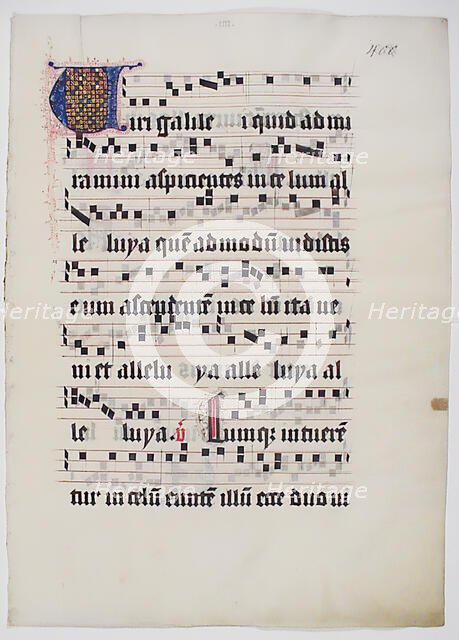 ·iiii·
400
Viri galile i quid ad mi
ramini aspicientes in ce lum al
le luya quē ad modū vidistis
eum ascendentē in ce lū ita ve
ni et allelu ya alle luya al
le luya. v̄ Cumq; intuerē
tur in celū euntē illū ecce duo vi
Heritage
Heritage
Heritage
Heritage
Heritage
Heritage
Heritage
Heritage